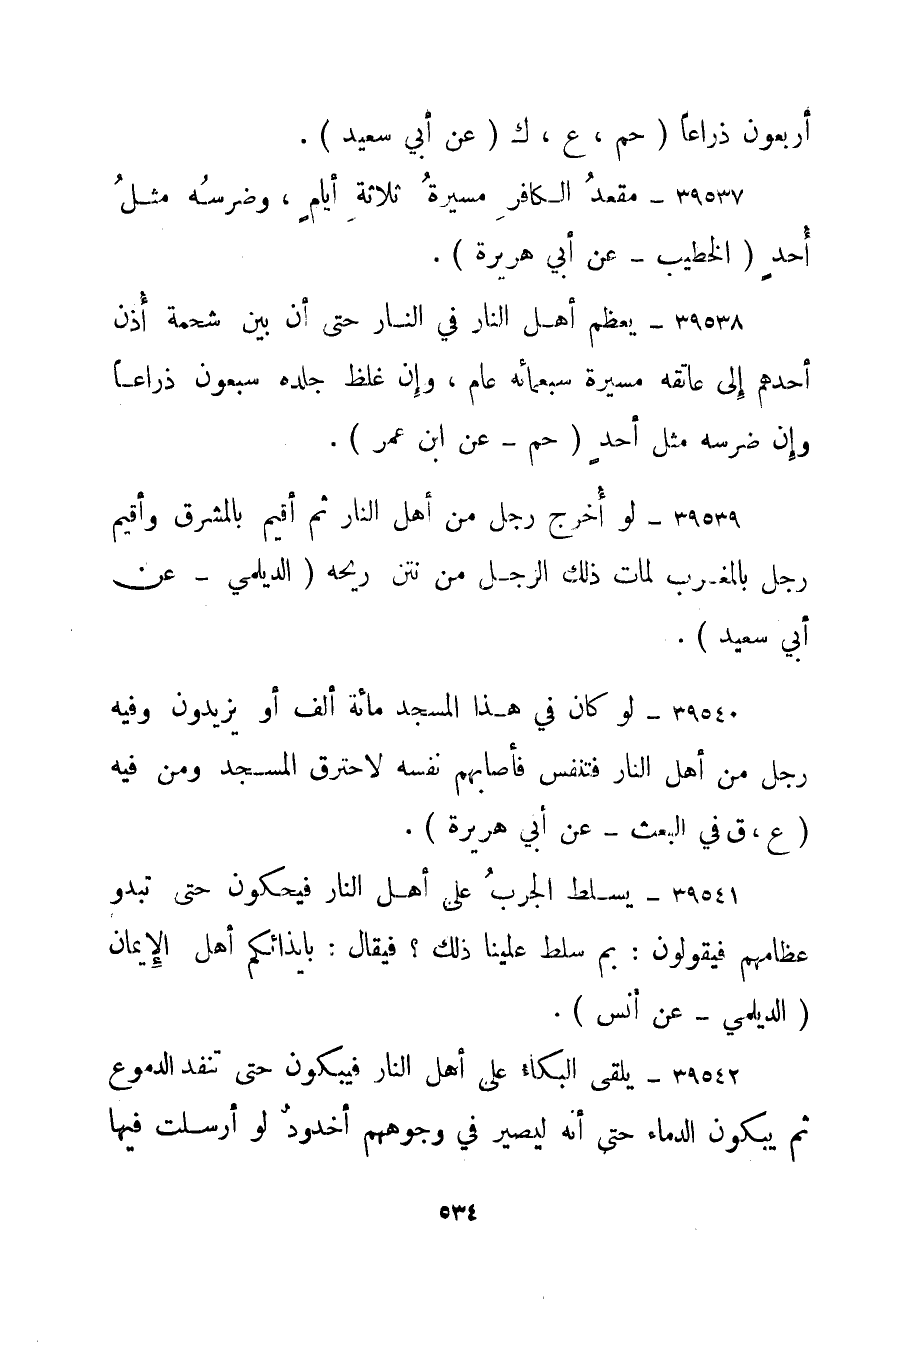 أربعون ذراعاً ( حم ، ع ، ك ( عن أبي سعيد ) .
٣٩٥٣٧ ـ مقعدُ الـكافرِ مسيرةُ ثلاثةِ أيامٍ ، وضرسُـه مثـلُ
أُحدٍ ( الخطيب ـ عن أبي هريرة ) .
٣٩٥٣٨ ـ يعظم أهـل النار في النـار حتى أن بين شحمة أُذن
أحدهم إلى عاتقه مسيرة سبعمائه عام ، وإن غلظ جلده سبعون ذراعـاً
وإن ضرسه مثل أحدٍ ( حم ـ عن ابن عمر ) .
٣٩٥٣٩ ـ لو أُخرج رجل من أهل النار ثم أقيم بالمشرق وأقيم
رجل بالمغـرب لمات ذلك الرجـل من نتن ريحه ( الديلمي ـ عن
أبي سعيد ) .
٣٩٥٤٠ ـ لو كان في هـذا المسجد مائة ألف أو يزيدون وفيه
رجل من أهل النار فتنفس فأصابهم نفسه لاحترق المسـجد ومن فيه
( ع ، ق في البعث ـ عن أبي هريرة ) .
٣٩٥٤١ ـ يسـلط الجربُ على أهـل النار فيحكون حتى تبدو
عظامهم فيقولون : بم سلط علينا ذلك ؟ فيقال : بايذائكم أهل الإيمان
( الديلمي ـ عن أنس ) .
٣٩٥٤٢ ـ يلقى البكاء على أهل النار فيبكون حتى تنفد الدموع
ثم يبكون الدماء حتى أنه ليصير في وجوههم أخدودٌ لو أرسـلت فيها
٥٣٤